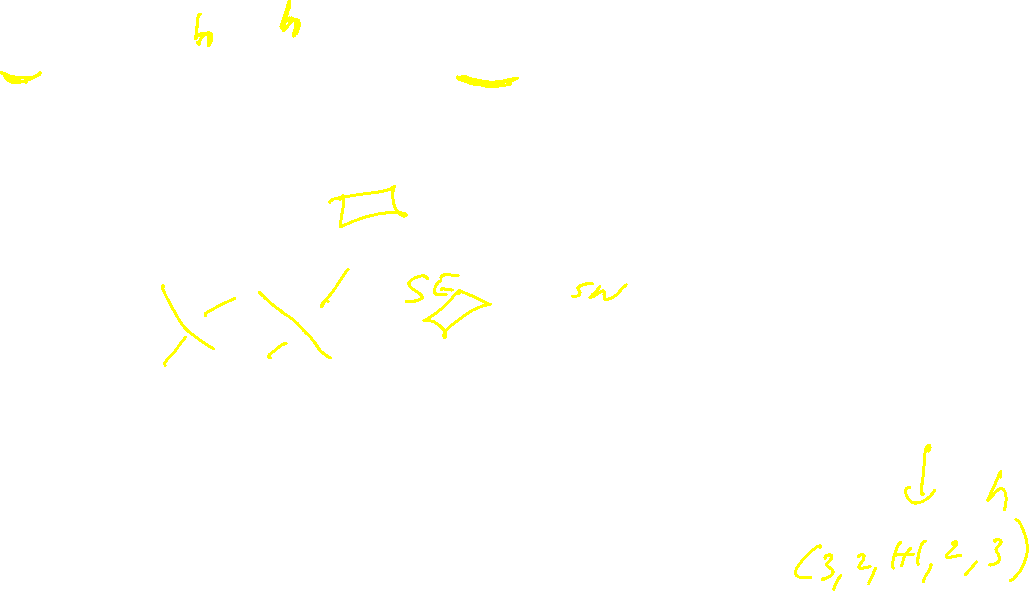 h h
SE SW
h
(3, 2, H, 2, 3)